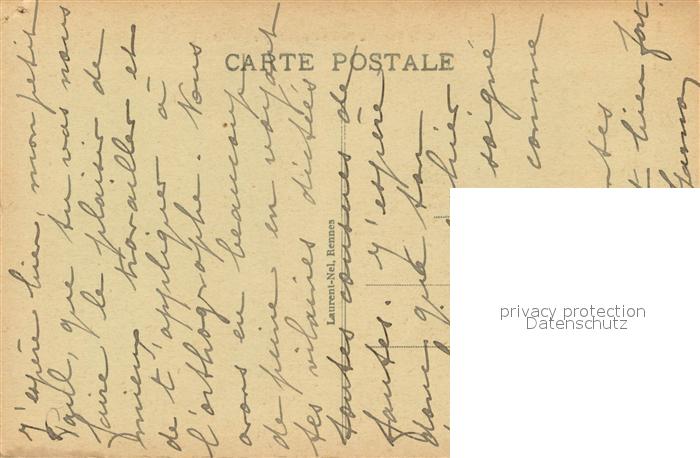 CARTE POSTALE
Laurent-Nel, Rennes
J'espère bien, mon petit
Paul, que tu vas nous
faire le plaisir de
mieux travailler et
de t'appliquer à
l'orthographe. Nous
avons eu beaucoup
de peine en voyant
tes vilaines dictées
toutes cousues de
fautes. J'espère
donc que ton
soigné
comme
bien fort.
privacy protection
Datenschutz